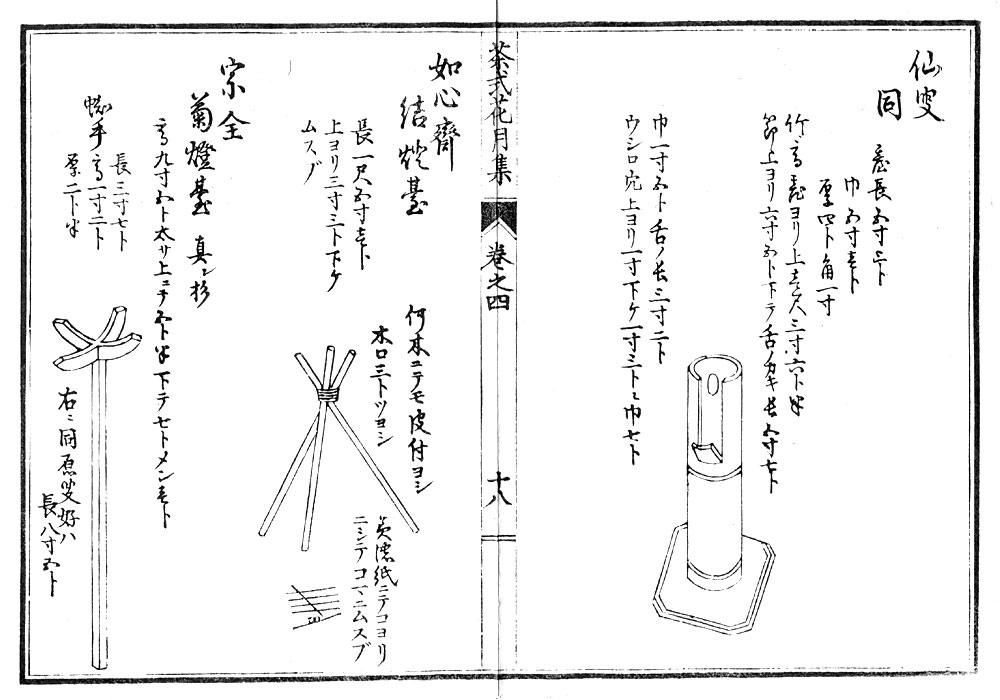 仙叟
同
臺長五寸三ト
巾五寸壱ト
厚四ト角一寸
竹ノ高サ臺ヨリ上壱尺三寸六ト半
節上ヨリ六寸五ト下テ舌ノカキ長五寸七ト
巾一寸五ト舌ノ長三寸二ト
ウシロ穴上ヨリ一寸下ケ一寸三トニ巾七ト
茶式花月集
巻之四
十八
如心齋
結燈臺
長一尺五寸壱ト
上ヨリ三寸三ト下ケ
ムスブ
何木ニテモ皮付ヨシ
木口三トツヨシ
美濃紙ニテコヨリ
ニシテコマニムスブ
宗全
菊燈臺
真ニ杉
高九寸五ト太サ上ニテ五ト半下テ七トメン壱ト
蜘手
長三寸七ト
高一寸二ト
厚二ト半
右ニ同原叟好ハ
長八寸五ト